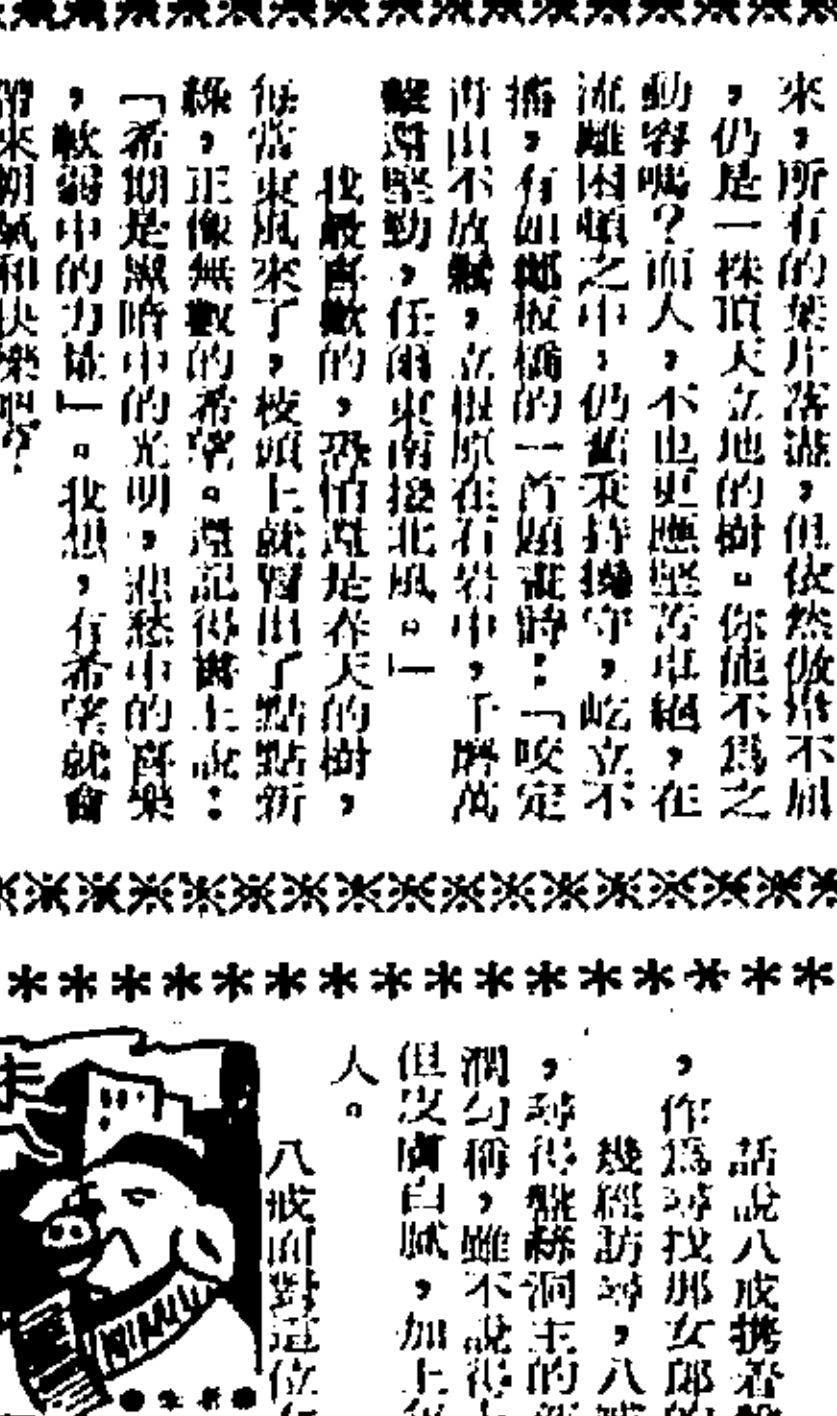 來，所有的葉片落盡，但依然傲岸不屈
，仍是一株頂天立地的樹。你能不爲之
動容嗎？而人，不也更應堅苦卓絕，在
流離困頓之中，仍舊秉持操守，屹立不
搖，有如鄭板橋的一首題畫詩：「咬定
青山不放鬆，立根原在石岩中，千磨萬
擊還堅勁，任爾東南接北風。」
我最喜歡的，恐怕還是春天的樹，
每當東風來了，枝頭上就冒出了點點新
綠，正像無數的希望。還記得書上說：
「希望是黑暗中的光明，悲愁中的喜樂
，軟弱中的力量」。我想，有希望就會
帶來朝氣和快樂吧？
話說八戒携着
，作爲尋找那女郎的
幾經訪尋，八戒
，尋得盤絲洞主的
潤勻稱，雖不說得上
但皮膚白膩，加上
人。
八戒面對這位